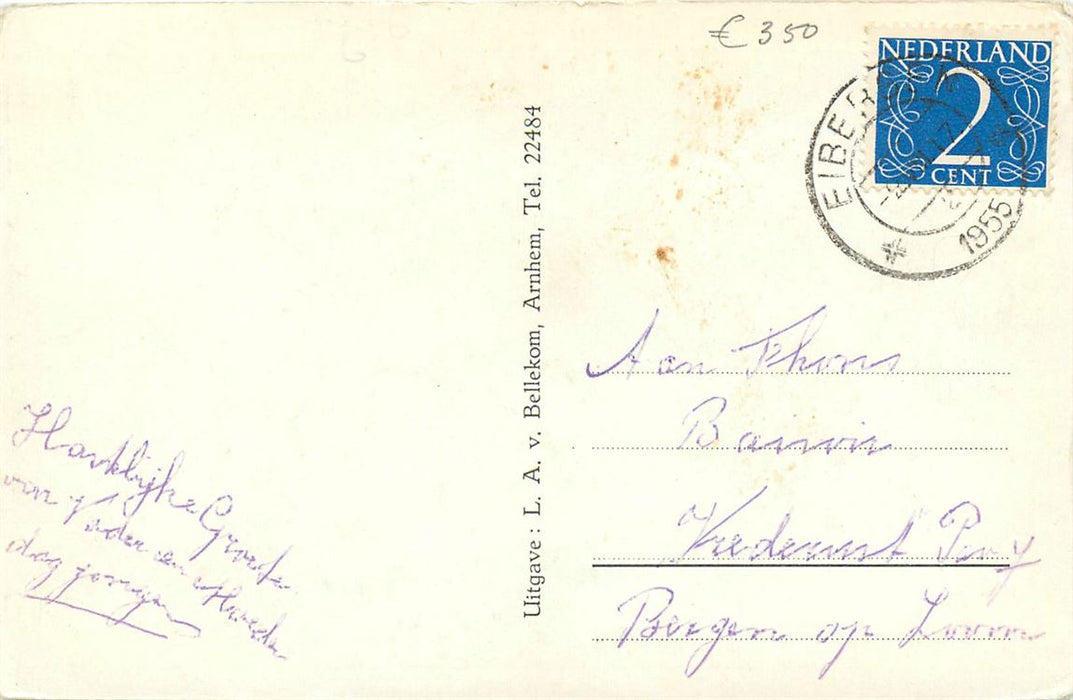 € 350
NEDERLAND
2
CENT
EIBERGEN
1955
Uitgave : L. A. v. Bellekom, Arnhem, Tel. 22484
Aan Thoms
Vrederust
Bergen op Zoom
Hartelijke Groet
van Vader en Moeder
dag jongen